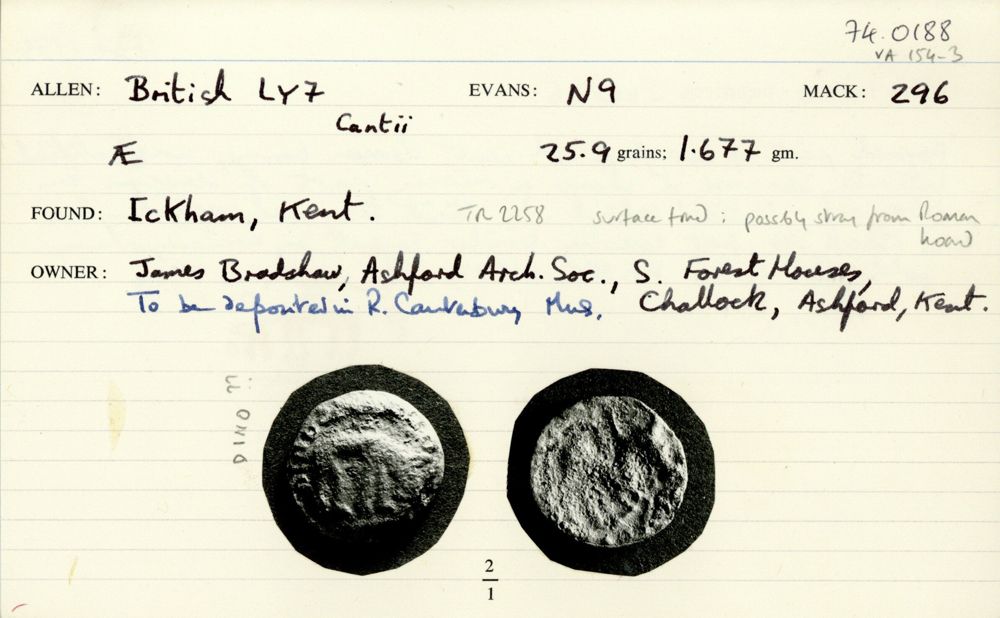 74.0188
VA 154-3
ALLEN: British LY7 EVANS: N9 MACK: 296
Cantii
Æ 25.9 grains; 1.677 gm.
FOUND: Ickham, Kent. TR 2258 surface find : possibly stray from Roman
hoard
OWNER: James Bradshaw, Ashford Arch. Soc., S. Forest Houses,
To be deposited in R. Canterbury Mus. Challock, Ashford, Kent.
DINO
DINO
2
1